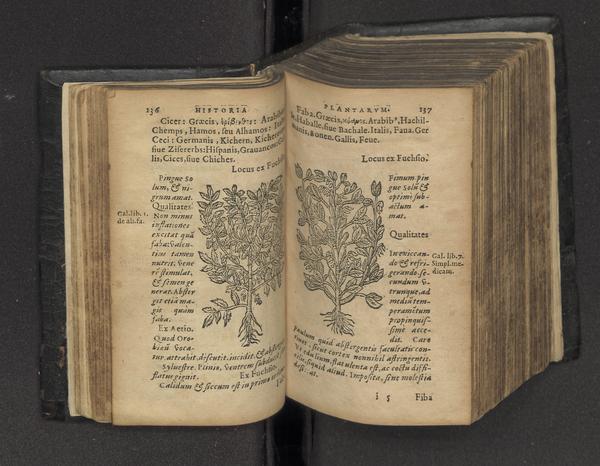 136 HISTORIA
Cicer: Græcis, ἐρέβινθος: Arabibus
Chemps, Hamos, seu Alhamos: Ita
Ceci: Germanis, Kichern, Kicheren
siue Zisererbs: Hispanis, Grauancos: Gal
lis, Cices, siue Chiches.
Locus ex Fuchsio
Pingue So
lum, & ni-
grum amat.
Qualitates.
Gal. lib. 1.
de ali. fa.
Non minus
inflationes
excitat quã
faba: valen-
tius tamen
nutrit, vene
rẽ stimulat,
& semen ge
nerat. Abster
git etiã ma-
gis quam
faba.
Ex Aetio.
Quod Oro-
biæũ voca-
tur, attrahit, discutit, incidit, & absterg
Syluestre. Plinio, Ventrem
flatus gignit.
Ex Fuchsio.
Calidum & siccum est in primo
PLANTARVM. 137
Faba. Græcis, κύαμος. Arabibꝰ, Hachil-
Haballe, siue Bachale. Italis, Faua. Ger
manis, Bonen. Gallis, Feue.
Locus ex Fuchsio.
Fimum pin
gue Solũ &
optimi sub-
actum a-
mat.
Qualitates
Gal. lib. 7.
Simpl. me-
dicam.
In exiccan-
do & refri-
gerando, se-
cundum v-
trunque, ad
mediũ tem-
peramẽtum
propinquis-
simè acce-
dit. Caro
paulum quid abstergentis facultatis con-
tinet, sicut cortex nonnihil astringentis.
Vt edulium, flatulenta est, ac coctu diffi-
cilis, siquid aliud. Imposita, sine molestia
i 5 Faba